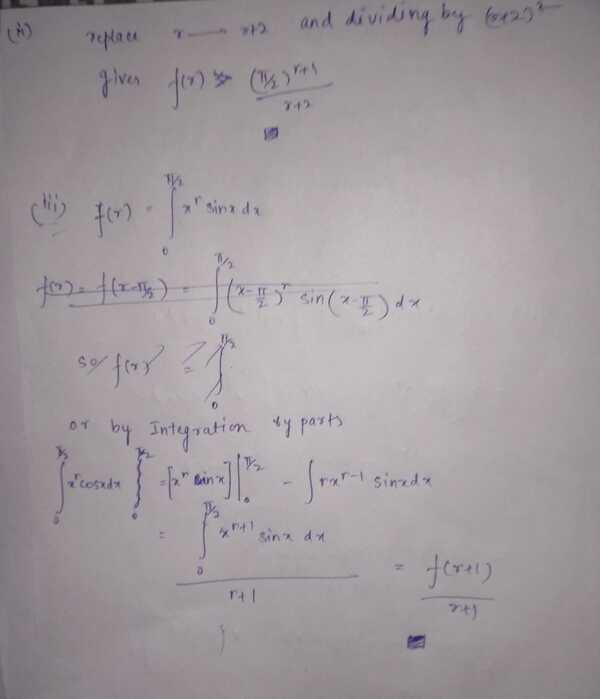 (ii) replace r → r+2 and dividing by (r+2)²
gives f(r) > (π/2)^(r+1) / (r+2)
(iii) f(r) = ∫_0^(π/2) x^r sinx dx
f(r) = f(x-π/2) = ∫_0^(π/2) (x-π/2)^r sin(x-π/2) dx
so f(r) = ∫_0^(π/2)
or by Integration by parts
∫_0^(π/2) x^r cosx dx ∫_0^(π/2) = [x^r sinx] |_0^(π/2) - ∫ r x^(r-1) sinx dx
= ∫_0^(π/2) x^(r+1) sinx dx / (r+1) = f(r+1) / (r+1)